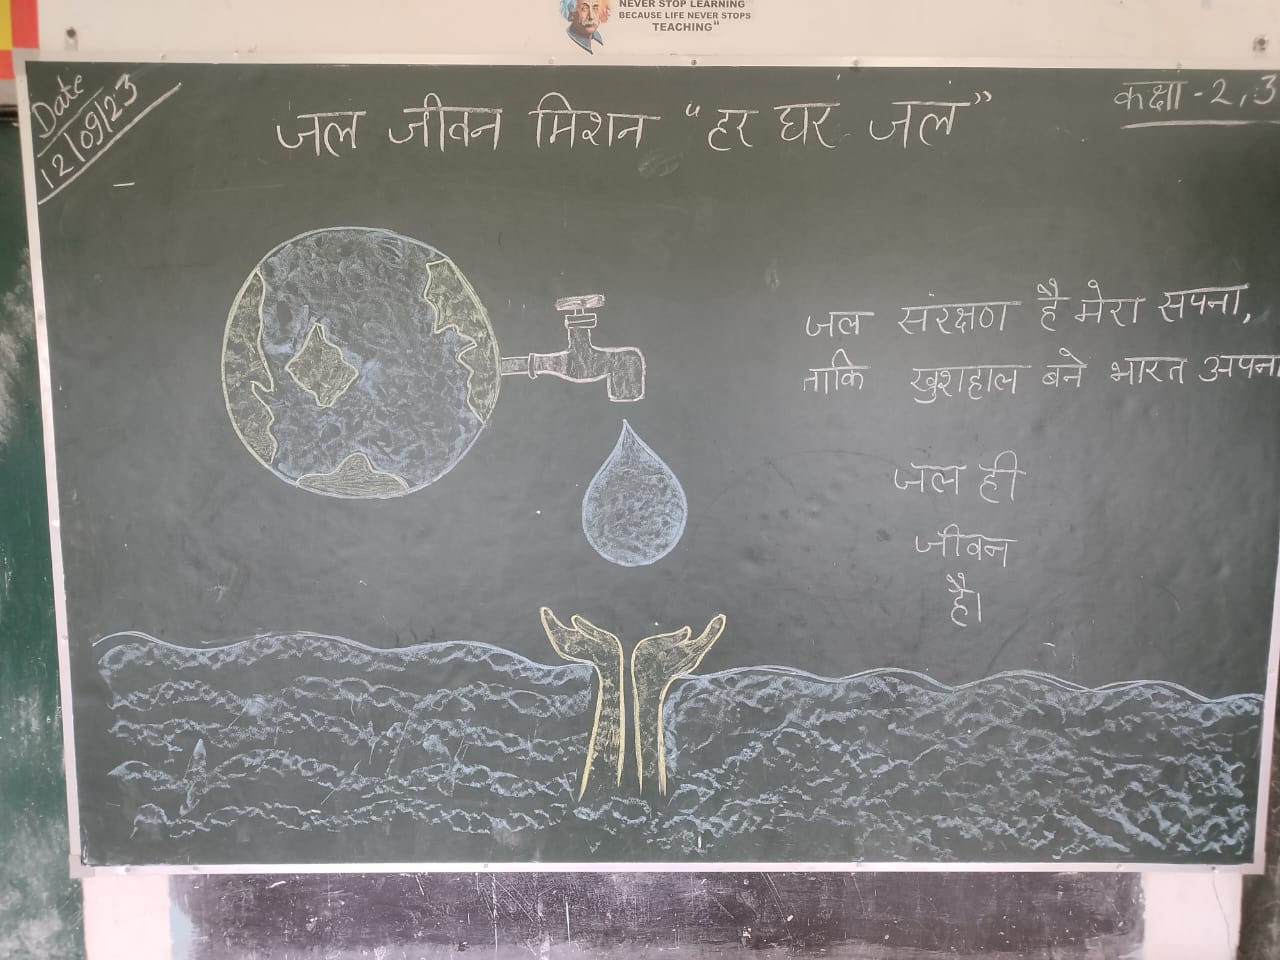 NEVER STOP LEARNING
BECAUSE LIFE NEVER STOPS
TEACHING"
Date
12/09/23
कक्षा - 2,3
जल जीवन मिशन "हर घर जल"
जल संरक्षण है मेरा सपना,
ताकि खुशहाल बने भारत अपना
जल ही
जीवन
है।